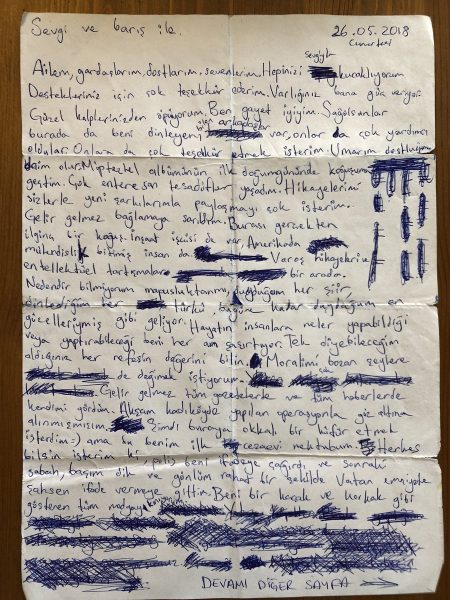 Sevgi ve barış ile.
26.05.2018
Cumartesi
Ailem, gardaşlarım, dostlarım, sevenlerim. Hepinizi sevgiyle kucaklıyorum
Destekleriniz için çok teşekkür ederim. Varlığınız bana güç veriyor.
Güzel kalplerinizden öpüyorum. Ben gayet iyiyim. Sağolsunlar
burada da beni dinleyen arkadaşlar var, onlar da çok yardımcı
oldular. Onlara da çok teşekkür etmek isterim. Umarım dostluğumuz
daim olur. Müptezhel albümünün ilk doğumgününde koğuşuma
geçtim. Çok enteresan tesadüfler yaşadım. Hikayelerimi
sizlerle yeni şarkılarımla paylaşmayı çok isterim.
Gelir gelmez bağlamaya sarıldım. Burası gerçekten
ilginç bir koğuş. İnşaat işçisi de var, Amerikada
mühendislik bitmiş insan da Varoş hikayeleriu
entellektüel tartışmalar bir arada.
Nedendir bilmiyorum mapusluktanmı, duyduğum her şiir
dinlediğim her türkü bugüne kadar duyduğum en
güzelleriymiş gibi geliyor. Hayatın insanlara neler yapabildiği
veya yaptırabileceği beni her an şaşırtıyor. Tek diyebileceğim
aldığınız her nefesin değerini bilin. Moralimi bozan şeylere
de değinmek istiyorum.
Gelir gelmez tüm gazetelerde ve tüm haberlerde
kendimi gördüm. Akşam kadıköyde yapılan operasyonla göz altına
alınmışmışım. Şimdi buraya okkalı bir küfür etmek
isterdim :) ama bu benim ilk cezaevi mektubum. Herkes
bilsin isterim ki polis beni ifadeye çağırdı ve sonraki
sabah, başım dik ve gönlüm rahat bir şekilde Vatan emniyete
şahsen ifade vermeye gittim. Beni bir kaçak ve korkak gibi
gösteren tüm medyayı
DEVAMI DİĞER SAYFA →